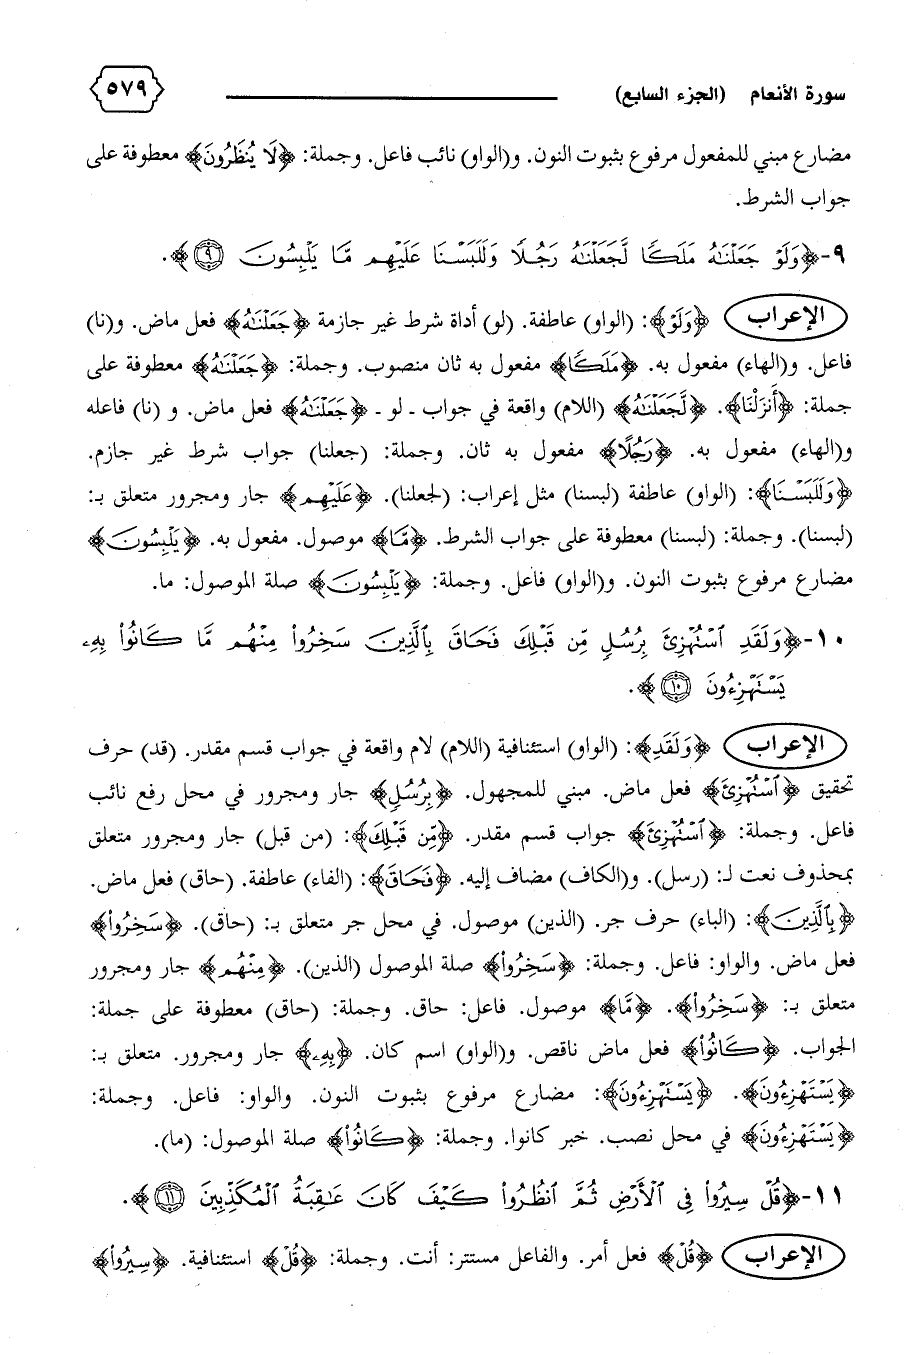 سورة الأنعام (الجزء السابع) ٥٧٩
مضارع مبني للمفعول مرفوع بثبوت النون. و(الواو) نائب فاعل. وجملة: ﴿لَا يُنظَرُونَ﴾ معطوفة على
جواب الشرط.
٩-﴿وَلَوْ جَعَلْنَٰهُ مَلَكًا لَّجَعَلْنَٰهُ رَجُلًا وَلَلَبَسْنَا عَلَيْهِم مَّا يَلْبِسُونَ ۝٩﴾.
الإعراب ﴿وَلَوْ﴾: (الواو) عاطفة. (لو) أداة شرط غير جازمة ﴿جَعَلْنَٰهُ﴾ فعل ماض. و(نا)
فاعل. و(الهاء) مفعول به. ﴿مَلَكًا﴾ مفعول به ثان منصوب. وجملة: ﴿جَعَلْنَٰهُ﴾ معطوفة على
جملة: ﴿أَنزَلْنَا﴾. ﴿لَّجَعَلْنَٰهُ﴾ (اللام) واقعة في جواب ـ لو ـ ﴿جَعَلْنَٰهُ﴾ فعل ماض. و (نا) فاعله
و(الهاء) مفعول به. ﴿رَجُلًا﴾ مفعول به ثان. وجملة: (جعلنا) جواب شرط غير جازم.
﴿وَلَلَبَسْنَا﴾: (الواو) عاطفة (لبسنا) مثل إعراب: (لجعلنا). ﴿عَلَيْهِم﴾ جار ومجرور متعلق بـ:
(لبسنا). وجملة: (لبسنا) معطوفة على جواب الشرط. ﴿مَّا﴾ موصول. مفعول به. ﴿يَلْبِسُونَ﴾
مضارع مرفوع بثبوت النون. و(الواو) فاعل. وجملة: ﴿يَلْبِسُونَ﴾ صلة الموصول: ما.
١٠-﴿وَلَقَدِ ٱسْتُهْزِئَ بِرُسُلٍ مِّن قَبْلِكَ فَحَاقَ بِٱلَّذِينَ سَخِرُوا۟ مِنْهُم مَّا كَانُوا۟ بِهِۦ
يَسْتَهْزِءُونَ ۝١٠﴾.
الإعراب ﴿وَلَقَدِ﴾: (الواو) استئنافية (اللام) لام واقعة في جواب قسم مقدر. (قد) حرف
تحقيق ﴿ٱسْتُهْزِئَ﴾ فعل ماض. مبني للمجهول. ﴿بِرُسُلٍ﴾ جار ومجرور في محل رفع نائب
فاعل. وجملة: ﴿ٱسْتُهْزِئَ﴾ جواب قسم مقدر. ﴿مِّن قَبْلِكَ﴾: (من قبل) جار ومجرور متعلق
بمحذوف نعت لـ: (رسل). و(الكاف) مضاف إليه. ﴿فَحَاقَ﴾: (الفاء) عاطفة. (حاق) فعل ماض.
﴿بِٱلَّذِينَ﴾: (الباء) حرف جر. (الذين) موصول. في محل جر متعلق بـ: (حاق). ﴿سَخِرُوا۟﴾
فعل ماض. والواو: فاعل. وجملة: ﴿سَخِرُوا۟﴾ صلة الموصول (الذين). ﴿مِنْهُم﴾ جار ومجرور
متعلق بـ: ﴿سَخِرُوا۟﴾. ﴿مَّا﴾ موصول. فاعل: حاق. وجملة: (حاق) معطوفة على جملة:
الجواب. ﴿كَانُوا۟﴾ فعل ماض ناقص. و(الواو) اسم كان. ﴿بِهِۦ﴾ جار ومجرور. متعلق بـ:
﴿يَسْتَهْزِءُونَ﴾. ﴿يَسْتَهْزِءُونَ﴾: مضارع مرفوع بثبوت النون. والواو: فاعل. وجملة:
﴿يَسْتَهْزِءُونَ﴾ في محل نصب. خبر كانوا. وجملة: ﴿كَانُوا۟﴾ صلة الموصول: (ما).
١١-﴿قُلْ سِيرُوا۟ فِى ٱلْأَرْضِ ثُمَّ ٱنظُرُوا۟ كَيْفَ كَانَ عَٰقِبَةُ ٱلْمُكَذِّبِينَ ۝١١﴾.
الإعراب ﴿قُلْ﴾ فعل أمر. والفاعل مستتر: أنت. وجملة: ﴿قُلْ﴾ استئنافية. ﴿سِيرُوا۟﴾